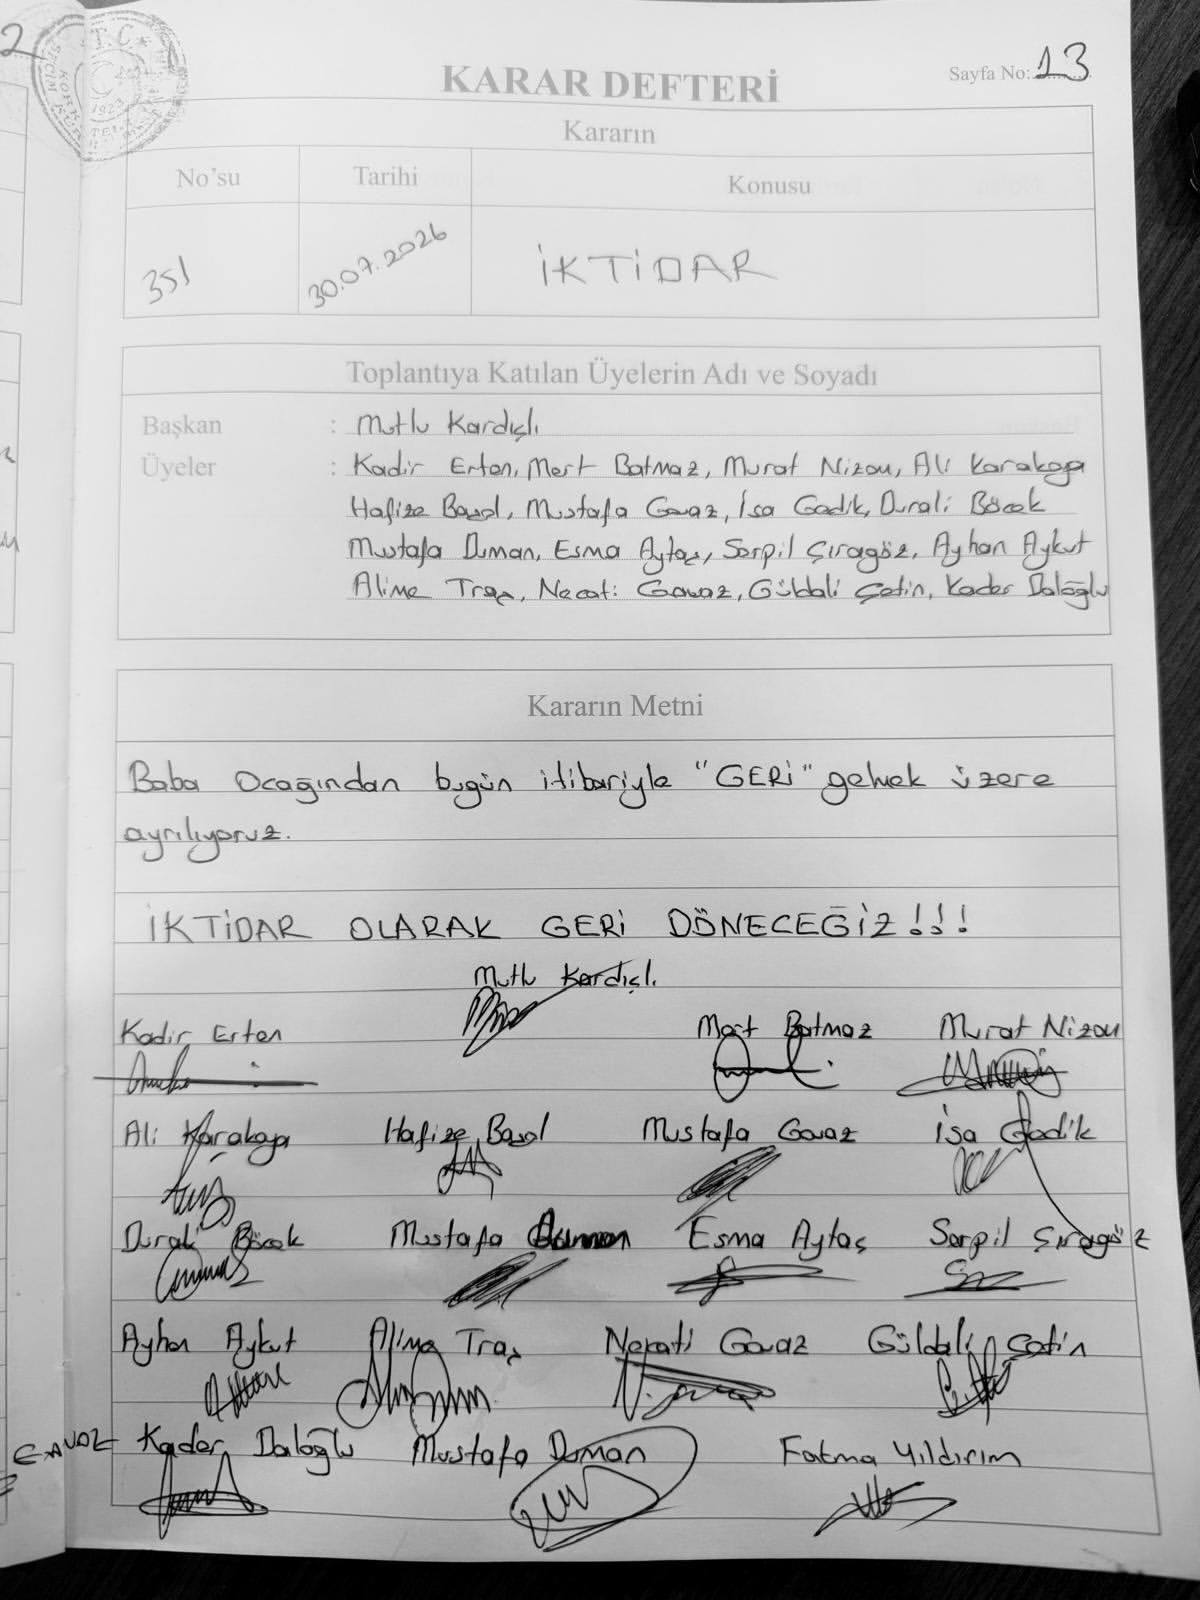 2
T.C
1923
KARAR DEFTERİ
Sayfa No: 13
Kararın
No'su Tarihi Konusu
351 30.07.2026 İKTİDAR
Toplantıya Katılan Üyelerin Adı ve Soyadı
Başkan : Mutlu Kardıçlı
Üyeler : Kadir Erten, Mert Batmaz, Murat Nizou, Ali Karakaya
Hafize Basol, Mustafa Gavaz, İsa Gadik, Durali Böcek
Mustafa Duman, Esma Aytaç, Serpil Çıragöz, Ayhan Aykut
Alime Traş, Necati Gavaz, Güldali Çetin, Kader Daloğlu
Kararın Metni
Baba Ocağından bugün itibariyle "GERİ" gelmek üzere
ayrılıyoruz.
İKTİDAR OLARAK GERİ DÖNECEĞİZ!!!
Mutlu Kardıçlı
Kadir Erten Mert Batmaz Murat Nizou
Ali Karakaya Hafize Basol Mustafa Gavaz İsa Gadik
Durali Böcek Mustafa Esma Aytaç Serpil Çıragöz
Ayhan Aykut Alime Traş Necati Gavaz Güldali Çetin
Kader Daloğlu Mustafa Duman Fatma Yıldırım